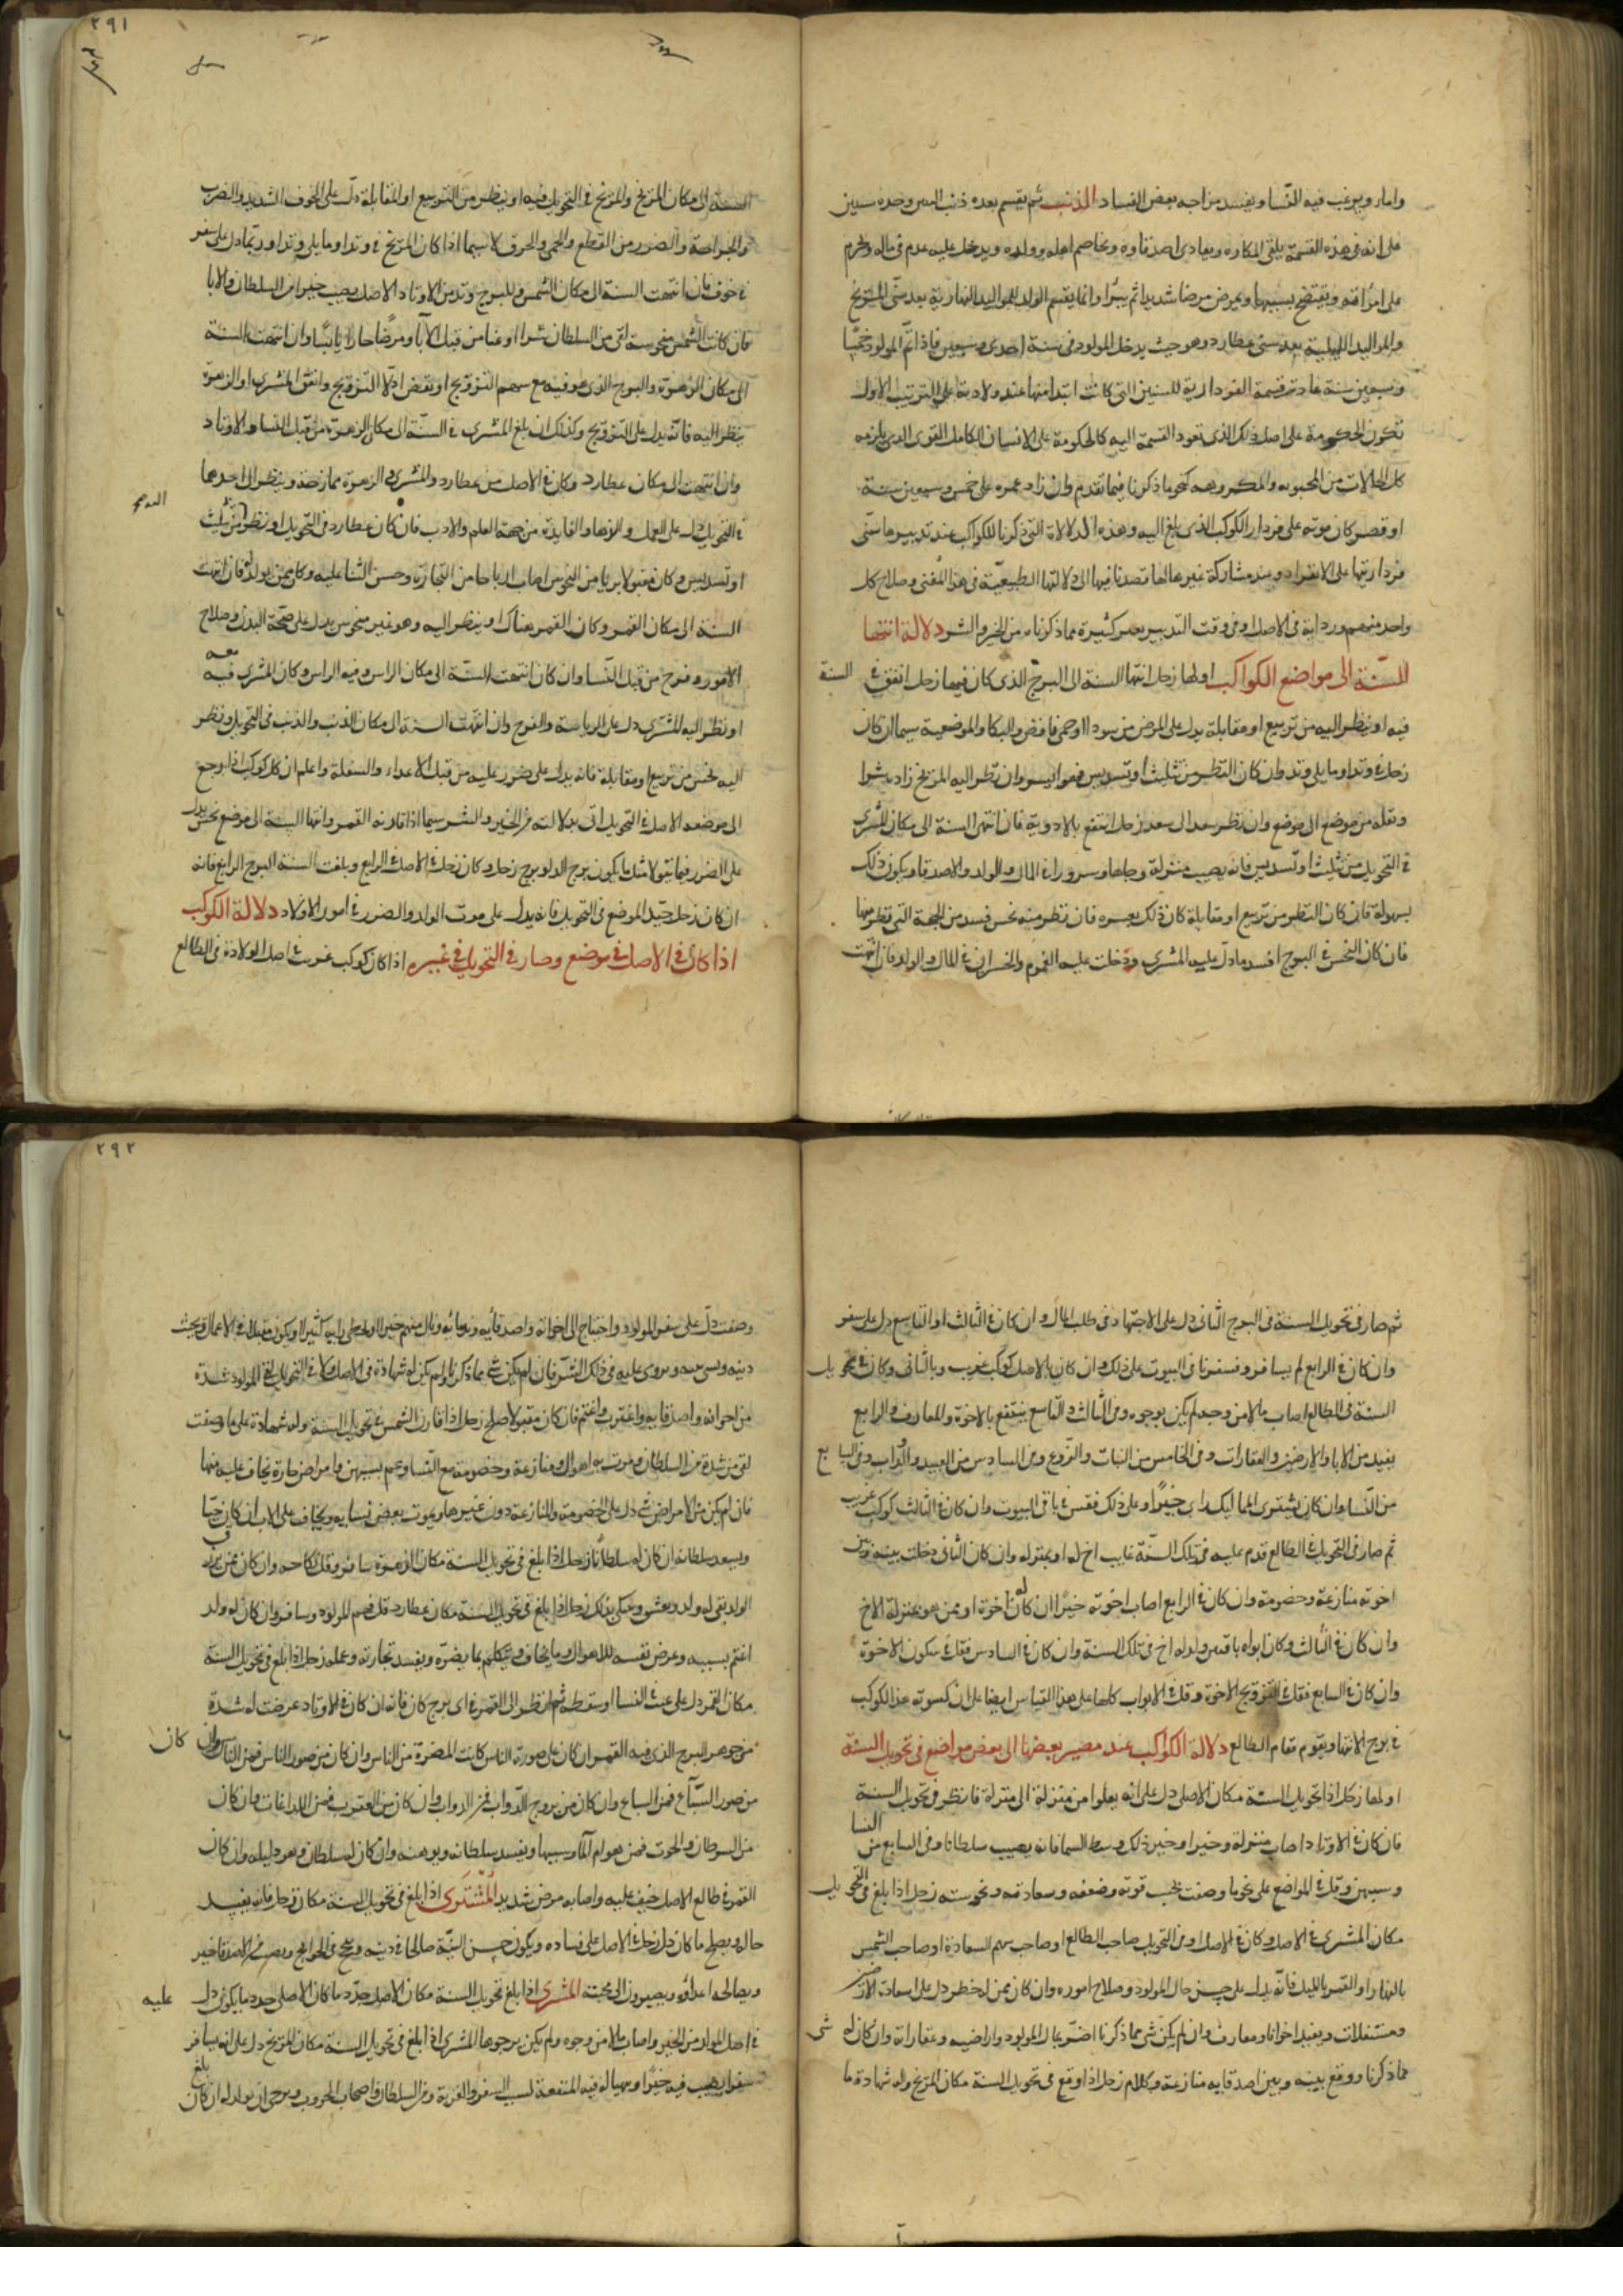 ٢٩١
واماء ويرغب فيه النسا ويفسد مزاجه بعض الفساد الذنب ثم يقسم بعده ذنب التنين وحده سنين
على انه في هذه القسمة يلقى المكاره ويعادى اصدقاوه ويخاصم اهله وولده ويدخل عليه عدم في ماله
على امراته ويفتضح بسببها ويمرض مرضا شديدا ثم يبرا وانما يقسم الولد للمواليد النهارية بعد سنى المريخ
والمواليد الليلية بعد سنى عطارد وهو حيث يدخل المولود في سنة احدى وسبعين فاذا اتم المولود خمسا
وسبعين سنة عادت قسمة الفردارية للسنين التي كانت ابتدا منها عند ولادته على الترتيب الاول
تكون الحكومة على اصل ذلك الذى تعود القسمة اليه كالحكومة على الانسان الكامل القوى الذى يلزمه
كل الحالات من المحبوبه والمكروهه كنحو ما ذكرنا فيما تقدم وان زاد عمره على خمس وسبعين سنة
او قصر كان موته على فردار الكوكب الذى بلغ اليه وهذه الدلالة التي ذكرنا للكواكب عند تدبيرها سنى
فرداريتها على الانفراد وعند مشاركة غيرها لها قصدنا فيها الى دلالتها الطبيعية في هذا المعنى وصلاح كل
واحد منهم ورداته في الاصل او في وقت التدبير يغير كثيرة مما ذكرناه من الخير والشر دلالة انتها
السنة الى مواضع الكواكب اولها زحل انتها السنة الى البرج الذى كان فيها زحل اتفق في السنة
فيه او ينظر اليه من تربيع او مقابلة يدل على المرض من سودا او حمى نافض والبكا والموضعية سيما ان كان
زحل في وتد او ما يلى وتد وان كان النظر من تثليث او تسديس فهو ايسر وان نظر اليه المريخ زاده شرا
ونقله من موضع الى موضع وان نظر سعد الى سعد زحل انتفع بالادوية فان انتهى السنة الى مكان المشترى
في التحويل من تثليث او تسديس فانه يصيب منزلة وجاها وسرورا في المال والولد والاصدقا ويكون ذلك
بسهولة فان كان النظر من تربيع او مقابلة كان ذلك بعسره فان نظر منه نحس فسد من الجهة التي نظر منها
فان كان النحس في البرج افسد ما دل عليه المشترى ودخلت عليه الغموم والخسران في المال والولد فان انتهت
السنة الى مكان المريخ والمريخ في التحويل فيه او ينظر من التربيع او المقابلة دل على الخوف الشديد والضرب
والجراحة والضرر من القطع والحمى والحرق لا سيما اذا كان المريخ في وتد او ما يلى وتد او ربما دل على سفر
في خوف فان انتهت السنة الى مكان الشمس والبرج وتد من الاوتاد الاصل يصيب خيرا من السلطان والابا
فان كانت الشمس منحوسة لقى من السلطان شرا او غما من قبل الآبا ومرضا حارا يابسا وان انتهت السنة
الى مكان الزهرة والبرج الذى هو فيه مع سهم التزويج او بعض ادلا التزويج واتفق المشترى او الزهرة
ينظر اليه فانه يدل على التزويج وكذلك ان بلغ المشترى في السنة الى مكان الزهرة من قبل النسا والاوتاد
وان انتهت الى مكان عطارد وكان في الاصل من عطارد والمشترى والزهرة ممازجة وينظر الى احدهما
في التحويل دل على العمل والزها والفايدة من جهة العلم والادب فان كان عطارد في التحويل او نظر من تثليث
او تسديس وكان مقبولا بريا من النحوس اصاب ارباحا من التجارة وحسن الثنا عليه وكان ممن يولد له فان انتهت
السنة الى مكان القمر وكان القمر هناك او ينظر اليه وهو غير منحوس يدل على صحة البدن وصلاح
الامور وفرح من قبل النسا وان كان انتهت السنة الى مكان الراس وفيه الراس وكان المشترى فيه معه
او نظر اليه المشترى دل على الرياسة والفرح وان انتهت السنة الى مكان الذنب والذنب في التحويل ونظر
اليه نحس من تربيع او مقابلة فانه يدل على ضرر عليه من قبل الاعداء والسفلة واعلم ان كل كوكب اذا رجع
الى موضعه الاصل في التحويل اتى بدلالته من الخير والشر سيما اذا قارنه القمر وانتها السنة الى موضع نحس يدل
على الضرر فيما يتولا مثل ما يكون برج الدلو برج زحل وكان زحل في الاصل في الرابع وبلغت السنة البرج الرابع فانه
ان كان زحل جيد الموضع في التحويل فانه يدل على موت الولد والضرر في امور الاولاد دلالة الكوكب
اذا كان في الاصل في موضع وصار في التحويل في غيره اذا كان كوكب غريب في اصل الولادة في الطالع
٢٩٢
ثم صار في تحويل السنة في البرج الثانى دل على الاجتهاد في طلب المال وان كان في الثالث او التاسع دل على سفر
وان كان في الرابع لم يسافر وقس في البيوت على ذلك وان كان بالاصل كوكب غريب وبالثانى وكان في تحويل
السنة في الطالع اصاب مالا من وجه لم يكن يرجوه وفي الثالث والتاسع ينتفع بالاخوة والمعارف والرابع
يفيد من الابا والارضين والعقارات وفي الخامس من النبات والزروع وفي السادس من العبيد والدواب وفي السابع
من النسا وان كان يشترى المماليك راى خيرا وعلى ذلك فقس في باقى البيوت وان كان في الثالث كوكب غريب
ثم صار في التحويل في الطالع قدم عليه في تلك السنة غايب اخ له او بمنزله وان كان الثانى دخلت بينه وبين
اخوته منازعة وخصومة وان كان في الرابع اصاب اخوته خيرا ان كان له اخوة او ممن هو بمنزلة الاخ
وان كان في الثالث وكان ابواه باقيين ولد له اخ في تلك السنة وان كان في السادس فقل في سكون الاخوة
وان كان في السابع فقل في التزويج الاخوة وقل في الابواب كلها على هذا القياس ايضا على ان كسوته هذا الكوكب
في برج الانتها ويقوم مقام الطالع دلالة الكواكب عند مصير بعضها الى بعض مواضع في تحويل السنة
اولها زحل اذا تحويل السنة مكان الاصلى دل على انه يعلوا من منزلة الى منزلة فانظر في تحويل السنة
فان كان في الاوتاد اصاب منزلة وخيرا وخير ذلك وسط السما فانه يصيب سلطانا وفي السابع من النسا
وسببهن وقل في المواضع على نحو ما وصفت بحسب قوته وضعفه وسعادته ونحوسته زحل اذا بلغ في التحويل
مكان المشترى في الاصل وكان في الاصل او في التحويل صاحب الطالع او صاحب سهم السعادة او صاحب الشمس
بالنهار او القمر بالليل فانه يدل على حسن حال المولود وصلاح اموره وان كان ممن له خطر دل على اسعاده الارضين
ومستغلات ويفيد اخوانا ومعارف وان لم يكن شى مما ذكرنا اضر بمال المولود واراضيه وعقاراته وان كان له شى
مما ذكرنا ووقع بينه وبين اصدقايه منازعة وكلام زحل اذا وقع في تحويل السنة مكان المريخ وله شهادة ما
وصفت دل على سفر المولود واحتاج الى اخوانه واصدقايه وندمائه ونال منهم خيرا
من اخوانه واصدقايه واغترب واغتم فان كان مقبولا صلح زحل اذا قارن الشمس في تحويل السنة وله شهادة على ما وصفت
لقى من شدة من السلطان ومرت به اهوال ومنازعة وخصومة مع النسا وغم بسببهن وامراض حارة يخاف عليه منها
فان لم يكن من الامراض شى دل على الخصومة والمنازعة دون غيرها ويموت بعض نسايه ويخاف على الاب ان كان حيا
ويسعد سلطانه ان كان له سلطانا زحل اذا بلغ في تحويل السنة مكان الزهرة سافر وقل نكاحه وان كان ممن يريد
الولد بقى له ولد زحل اذا بلغ في تحويل السنة مكان عطارد قل فهم المولود وسافر وان كان له ولد
اغتم بسببه وعرض نفسه للاهوال وما يخاف ويتكلم بما يضره ويفسد تجارته وعمله زحل اذا بلغ في تحويل السنة
مكان القمر دل على عبث النسا او سقطه ثم انظر الى القمر في اى برج كان فانه ان كان في الاوتاد عرضت له شدة
من جوهر البرج الذى فيه القمر ان كان على صورة الناس كانت المضرة من الناس وان كان من صور الناس فمن الناس وان كان
من صور السباع فمن السباع وان كان من بروج الدواب فمن الدواب وان كان من العقرب فمن اللداغات وان كان
من السرطان والحوت فمن هوام الما وسببها ويفسد سلطانه ويوهنه وان كان له سلطان وهو دليله وان كان
القمر في طالع الاصل خيف عليه واصابه مرض شديد المشترى اذا بلغ في تحويل السنة مكان زحل فانه يفيد
حاله ويصلح ما كان دل زحل في الاصل على فساده ويكون حسن النية صالحا في دينه وينجح في الحوايج ويصيب من الاصدقا خير
ويصالحه اعداؤه ويصيرون الى محبته المشترى اذا بلغ تحويل السنة مكان الاصل جدد ما كان الاصلى جدد ما يكون دل عليه
في اصل المولد من الخير واصاب مالا من وجوه ولم يكن يرجوها المشترى اذا بلغ في تحويل السنة مكان المريخ دل على انه يسافر
سفرا يصيب فيه خيرا ويهيا له فيه المنفعة لسبب السفر والغربة ومن السلطان واصحاب الحروب ويرجى ان يولد له ان كان بلغ